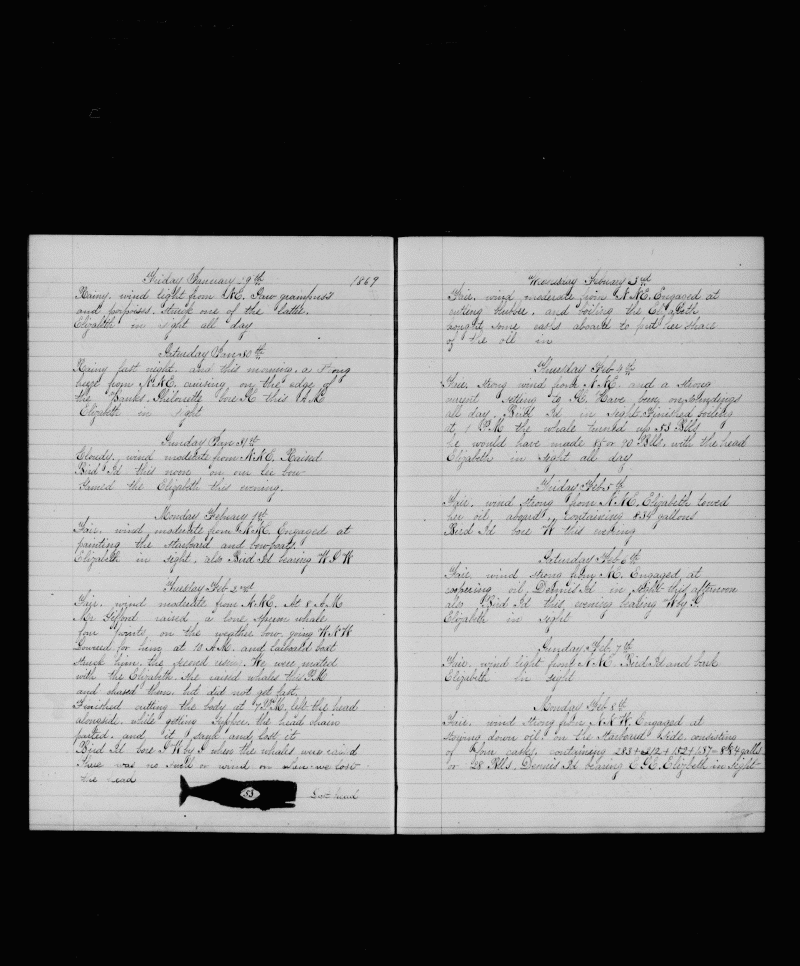 Friday January 29th 1869
Rainy. wind light from NE. Saw grampuss
and porpoises. struck one of the latter.
Elizabeth in sight all day
Saturday Jan 30th
Rainy last night. and this morning. a strong
breeze from NNE. cruising on the edge of
the Banks. Shilouette bore this A.M
Elizabeth in sight
Sunday Jan 31th
Cloudy. wind moderate from NNE. Raised
Bird Id this noon on our lee bow
Gamed the Elizabeth this evening.
Monday Febuary 1th
Fair. wind moderate from NNE. Engaged at
painting the starboard and bowboats.
Elizabeth in sight. also Bird Id bearing W S W
Tuesday Feb 2nd
Fair. wind moderate from NNE. At 8 A.M
Mr Gifford raised a lone sperm whale
four points on the weather bow. going W N W
Lowered for him, at 11 A.M. and larboard boat
struck him. the second rising. We were mated
with the Elizabeth. She raised whales this P.M
and chased them. but did not get fast.
Finished cutting the body at 7 P.M. left the head
alongside. while getting Supper. the head chain
parted. and it sank and lost it
Bird Id bore S W by S when the whales were raised
There was no swell or wind on when we lost
the head
53
Lost head
Wednesday Febuary 3rd
Fair. wind moderate from N NE. Engaged at
cutting blubber. and boiling the Elizabeth
bought some casks aboard to put her share
of the oil in
Thursday Feb 4th
Fair. strong wind from N NE. and a strong
current setting to Have been on soundings
all day. Bird Id in sight. Finished boiling
at P.M the whale turned up 53 Blls
he would have made 85 or 90 Blls. with the head
Elizabeth in sight all day
Friday Feb 5th
Fair. wind strong from N NE. Elizabeth towed
her oil aboard. containing 834 gallons
Bird Id bore W this evening
Saturday Feb 6th
Fair. wind strong from NE. Engaged at
coopering oil. Dennis Id in sight this afternoon
also Bird Id this evening bearing W by S
Elizabeth in sight
Sunday Feb. 7th
Fair. wind light from N NE. Bird Id and bark
Elizabeth in sight
Monday Feb 8th
Fair. wind strong from N N W. Engaged at
stowing down oil on the starboard side. consisting
of four casks. containing 283+212+152+187=834 galls
or 28 Blls. Dennis Id bearing E S E. Elizabeth in sight